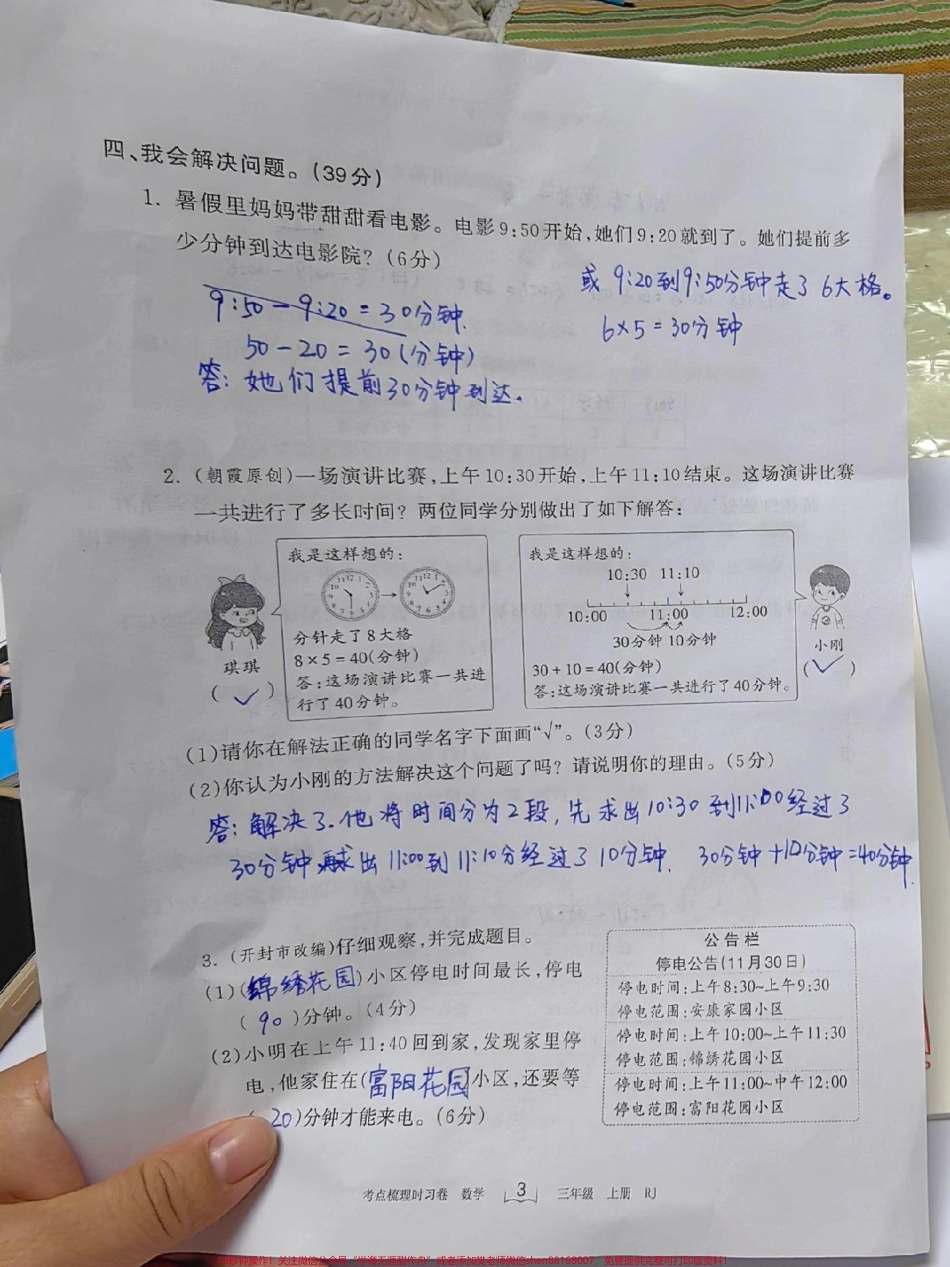 四、我会解决问题。(39分)
1. 暑假里妈妈带甜甜看电影。电影9:50开始,她们9:20就到了。她们提前多
少分钟到达电影院?(6分)
9:50-9:20=30分钟.
50-20=30(分钟)
答:她们提前30分钟到达.
或 9:20到9:50分钟走了6大格。
6×5=30分钟
2. (朝霞原创)一场演讲比赛,上午10:30开始,上午11:10结束。这场演讲比赛
一共进行了多长时间?两位同学分别做出了如下解答:
我是这样想的:
分针走了8大格
8×5=40(分钟)
答:这场演讲比赛一共进
行了40分钟。
琪琪
(✓)
我是这样想的:
10:30 11:10
10:00 11:00 12:00
30分钟 10分钟
30+10=40(分钟)
答:这场演讲比赛一共进行了40分钟。
小刚
(✓)
(1)请你在解法正确的同学名字下面画“√”。(3分)
(2)你认为小刚的方法解决这个问题了吗?请说明你的理由。(5分)
答:解决了.他将时间分为2段,先求出10:30到11:00经过了
30分钟 再求出11:00到11:10分经过了10分钟. 30分钟+10分钟=40分钟.
3. (开封市改编)仔细观察,并完成题目。
(1)(锦绣花园)小区停电时间最长,停电
(90)分钟。(4分)
(2)小明在上午11:40回到家,发现家里停
电,他家住在(富阳花园)小区,还要等
20)分钟才能来电。(6分)
公告栏
停电公告(11月30日)
停电时间:上午8:30~上午9:30
停电范围:安康家园小区
停电时间:上午10:00~上午11:30
停电范围:锦绣花园小区
停电时间:上午11:00~中午12:00
停电范围:富阳花园小区
考点梳理时习卷 数学 3 三年级 上册 RJ